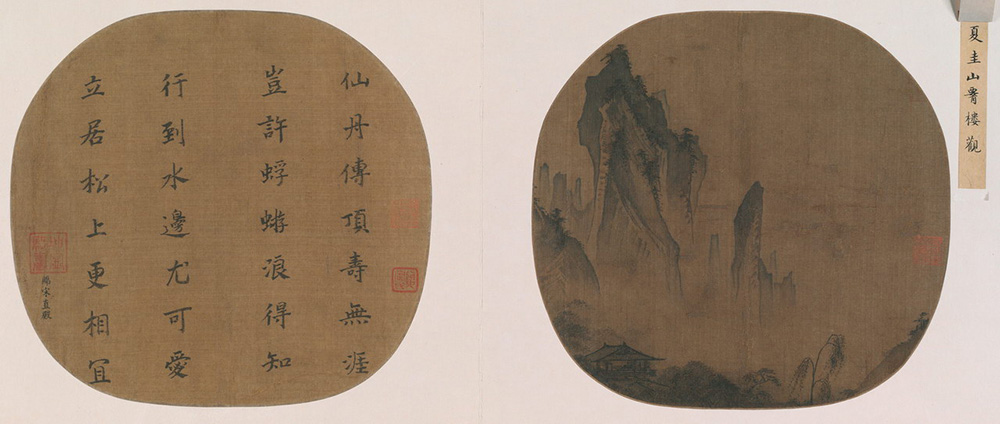 仙丹傳頂壽無涯
豈許蜉蝣浪得知
行到水邊尤可愛
立居松上更相宜
賜宋直殿
夏圭山水樓觀